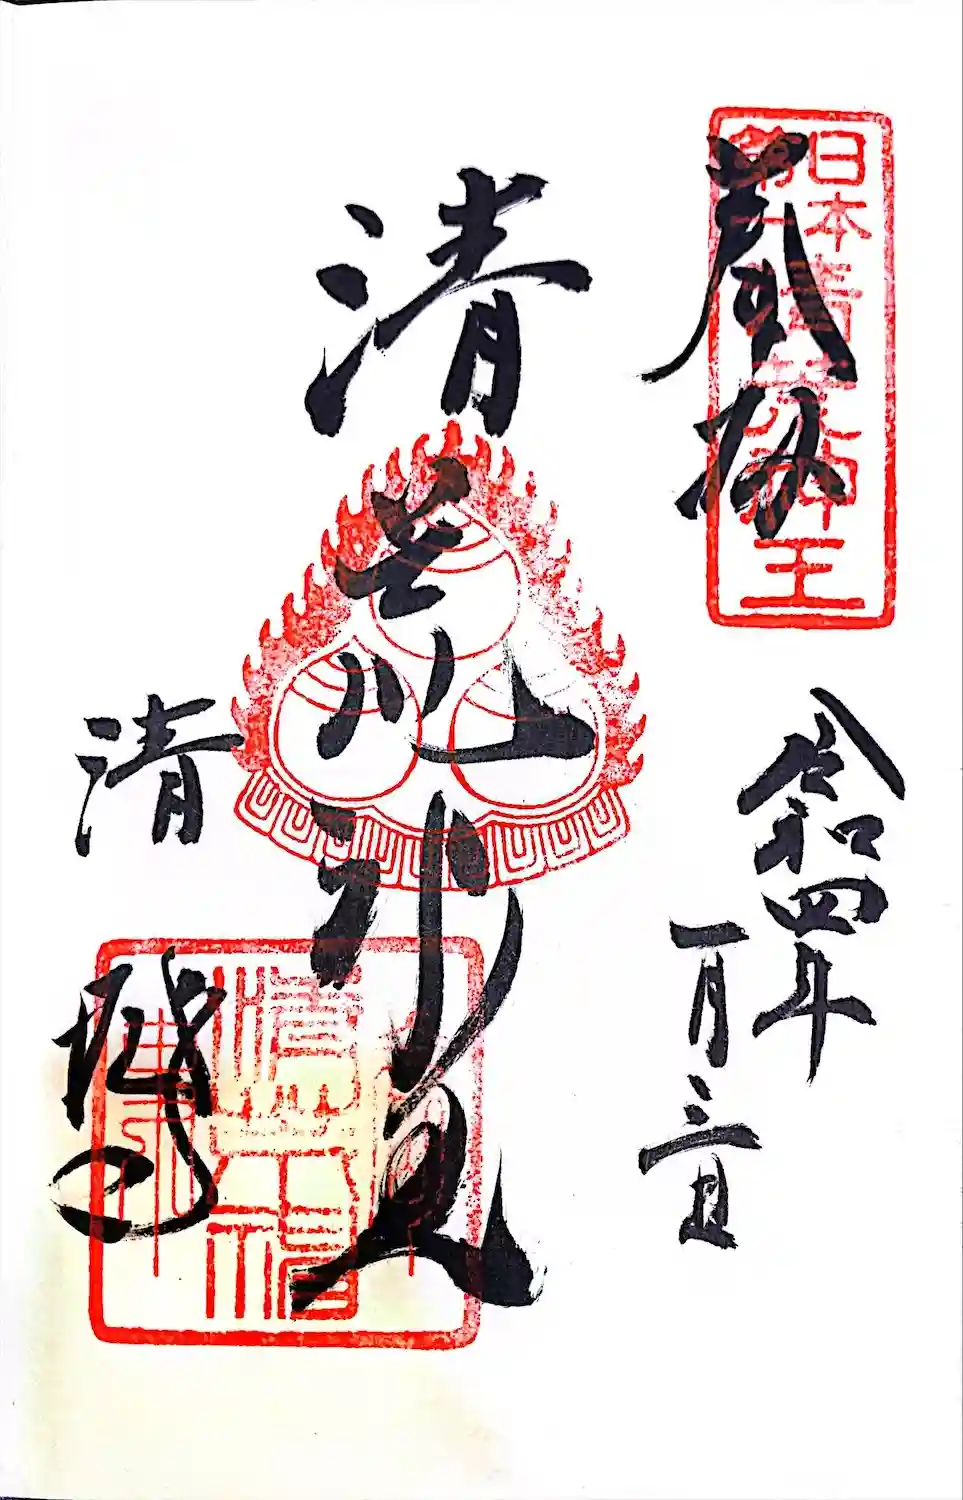 日本第一
清荒神王
奉拝
令和四年
一月三日
清荒神
清澄寺